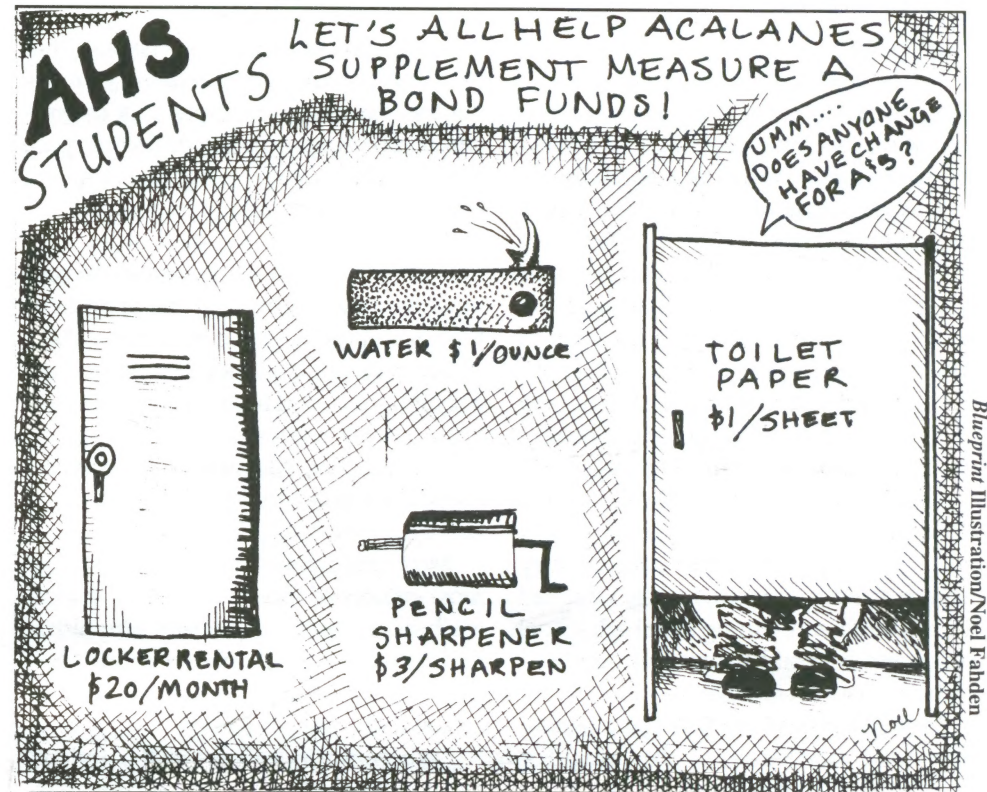 AHS
STUDENTS
LET'S ALL HELP ACALANES
SUPPLEMENT MEASURE A
BOND FUNDS!
UMM...
DOES ANYONE
HAVE CHANGE
FOR A $5?
WATER $1/OUNCE
TOILET
PAPER
$1/SHEET
LOCKER RENTAL
$20/MONTH
PENCIL
SHARPENER
$3/SHARPEN
Noel
Blueprint Illustration/Noel Fahden